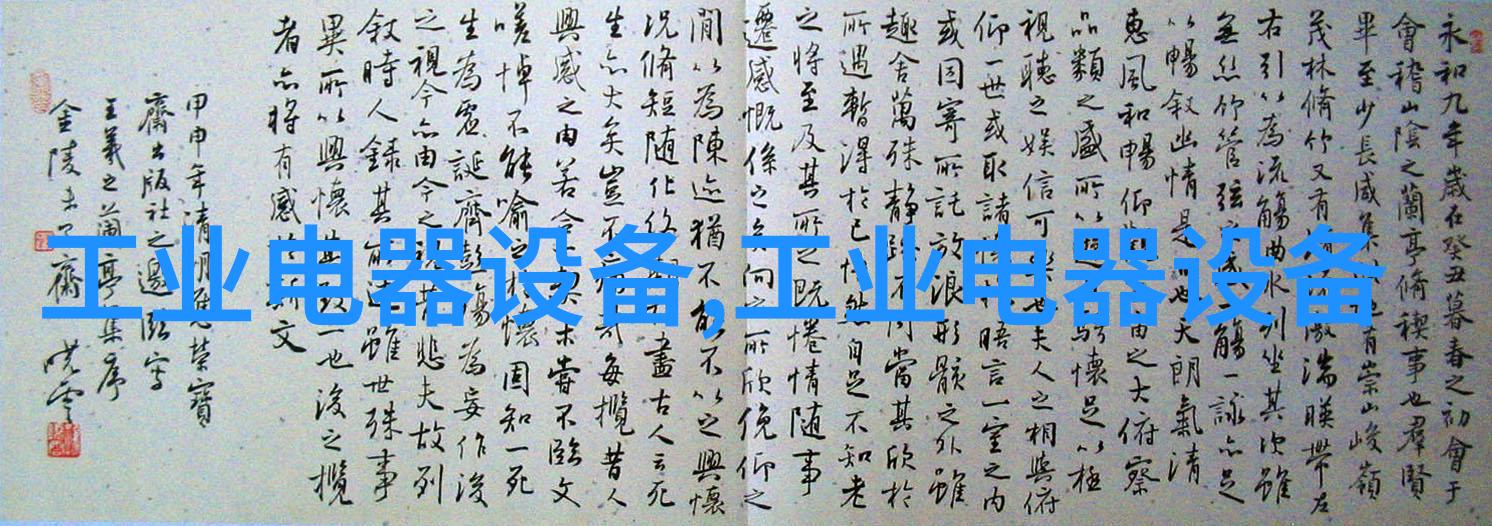 永和九年歲在癸丑暮春之初會于
會稽山陰之蘭亭脩禊事也羣賢
畢至少長咸集有崇山峻嶺
茂林脩竹又有激湍暎帶左
右引以為流觴曲水列坐其次雖
無絲竹管弦一觴一詠亦足
以暢敘幽情是日也天朗氣清
惠風和暢仰宙之大俯察
品類之盛所以騁懷足以極
視聽之娛信可樂也夫人之相與俯
仰一世或取諸懷抱晤言一室之內
或因寄所託放浪形骸之外雖
趣舍萬殊靜躁不同當其欣於
所遇暫得於己怏然自足不知老
之將至及其所之既惓情隨事
遷感慨係之矣向之所欣俛仰之
間以為陳迹猶不能不以之興懷
況脩短隨化終期盡古人云死
生亦大矣豈不痛哉每攬昔人
興感之由若合契未嘗不臨文
嗟悼不能喻之於懷固知一死
生為虛誕齊彭殤為妄作後
之視今亦由今之視昔悲夫故列
敘時人錄其所述雖世殊事
異所以興懷其致一也後之攬
者亦將有感於斯文
甲申年清明應榮寶
齋出版社之邀臨寫
王羲之蘭亭集序
金陵齋曉雲
工业电器设备,工业电器设备